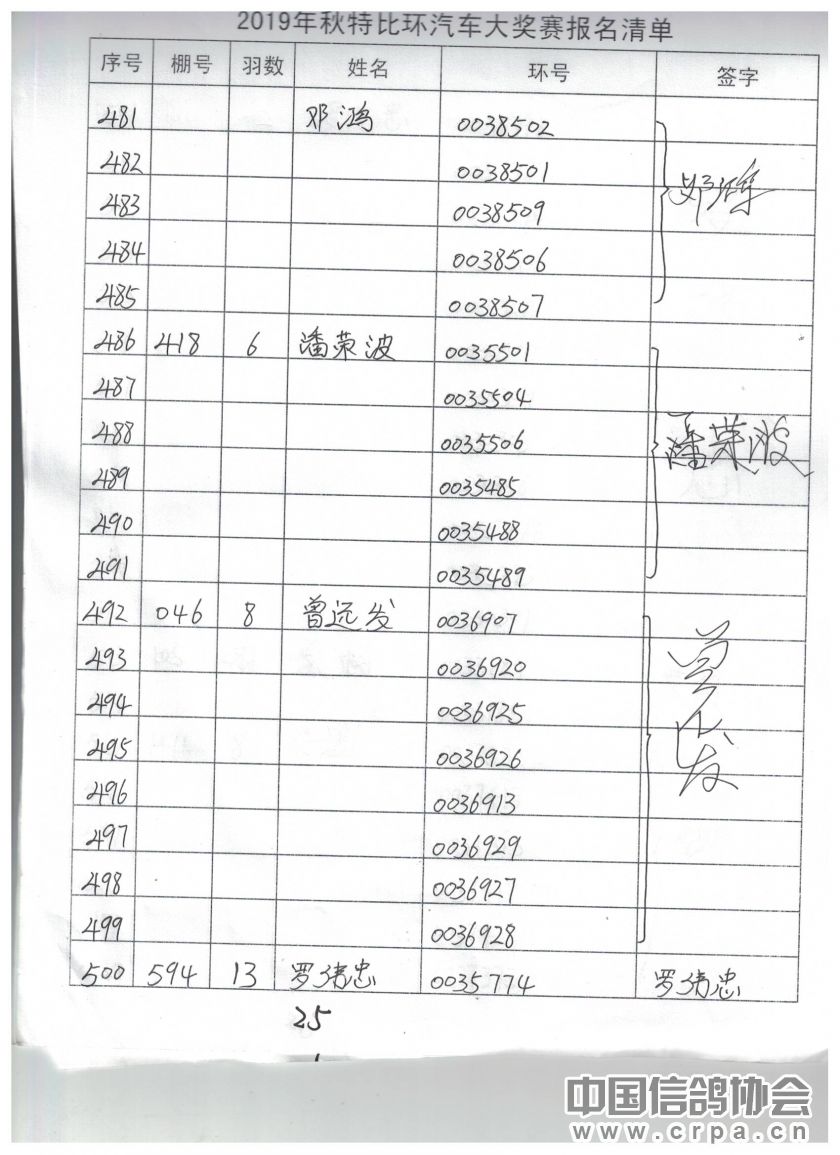 2019年秋特比环汽车大奖赛报名清单
序号 棚号 羽数 姓名 环号 签字
481 邓鸿 0038502
482 0038501
483 0038509
484 0038506
485 0038507
邓鸿
486 418 6 潘荣波 0035501
487 0035504
488 0035506
489 0035485
490 0035488
491 0035489
潘荣波
492 046 8 曾远发 0036907
493 0036920
494 0036925
495 0036926
496 0036913
497 0036929
498 0036927
499 0036928
500 594 13 罗 忠 0035774 罗 忠
25
中国信鸽协会
www.crpa.cn